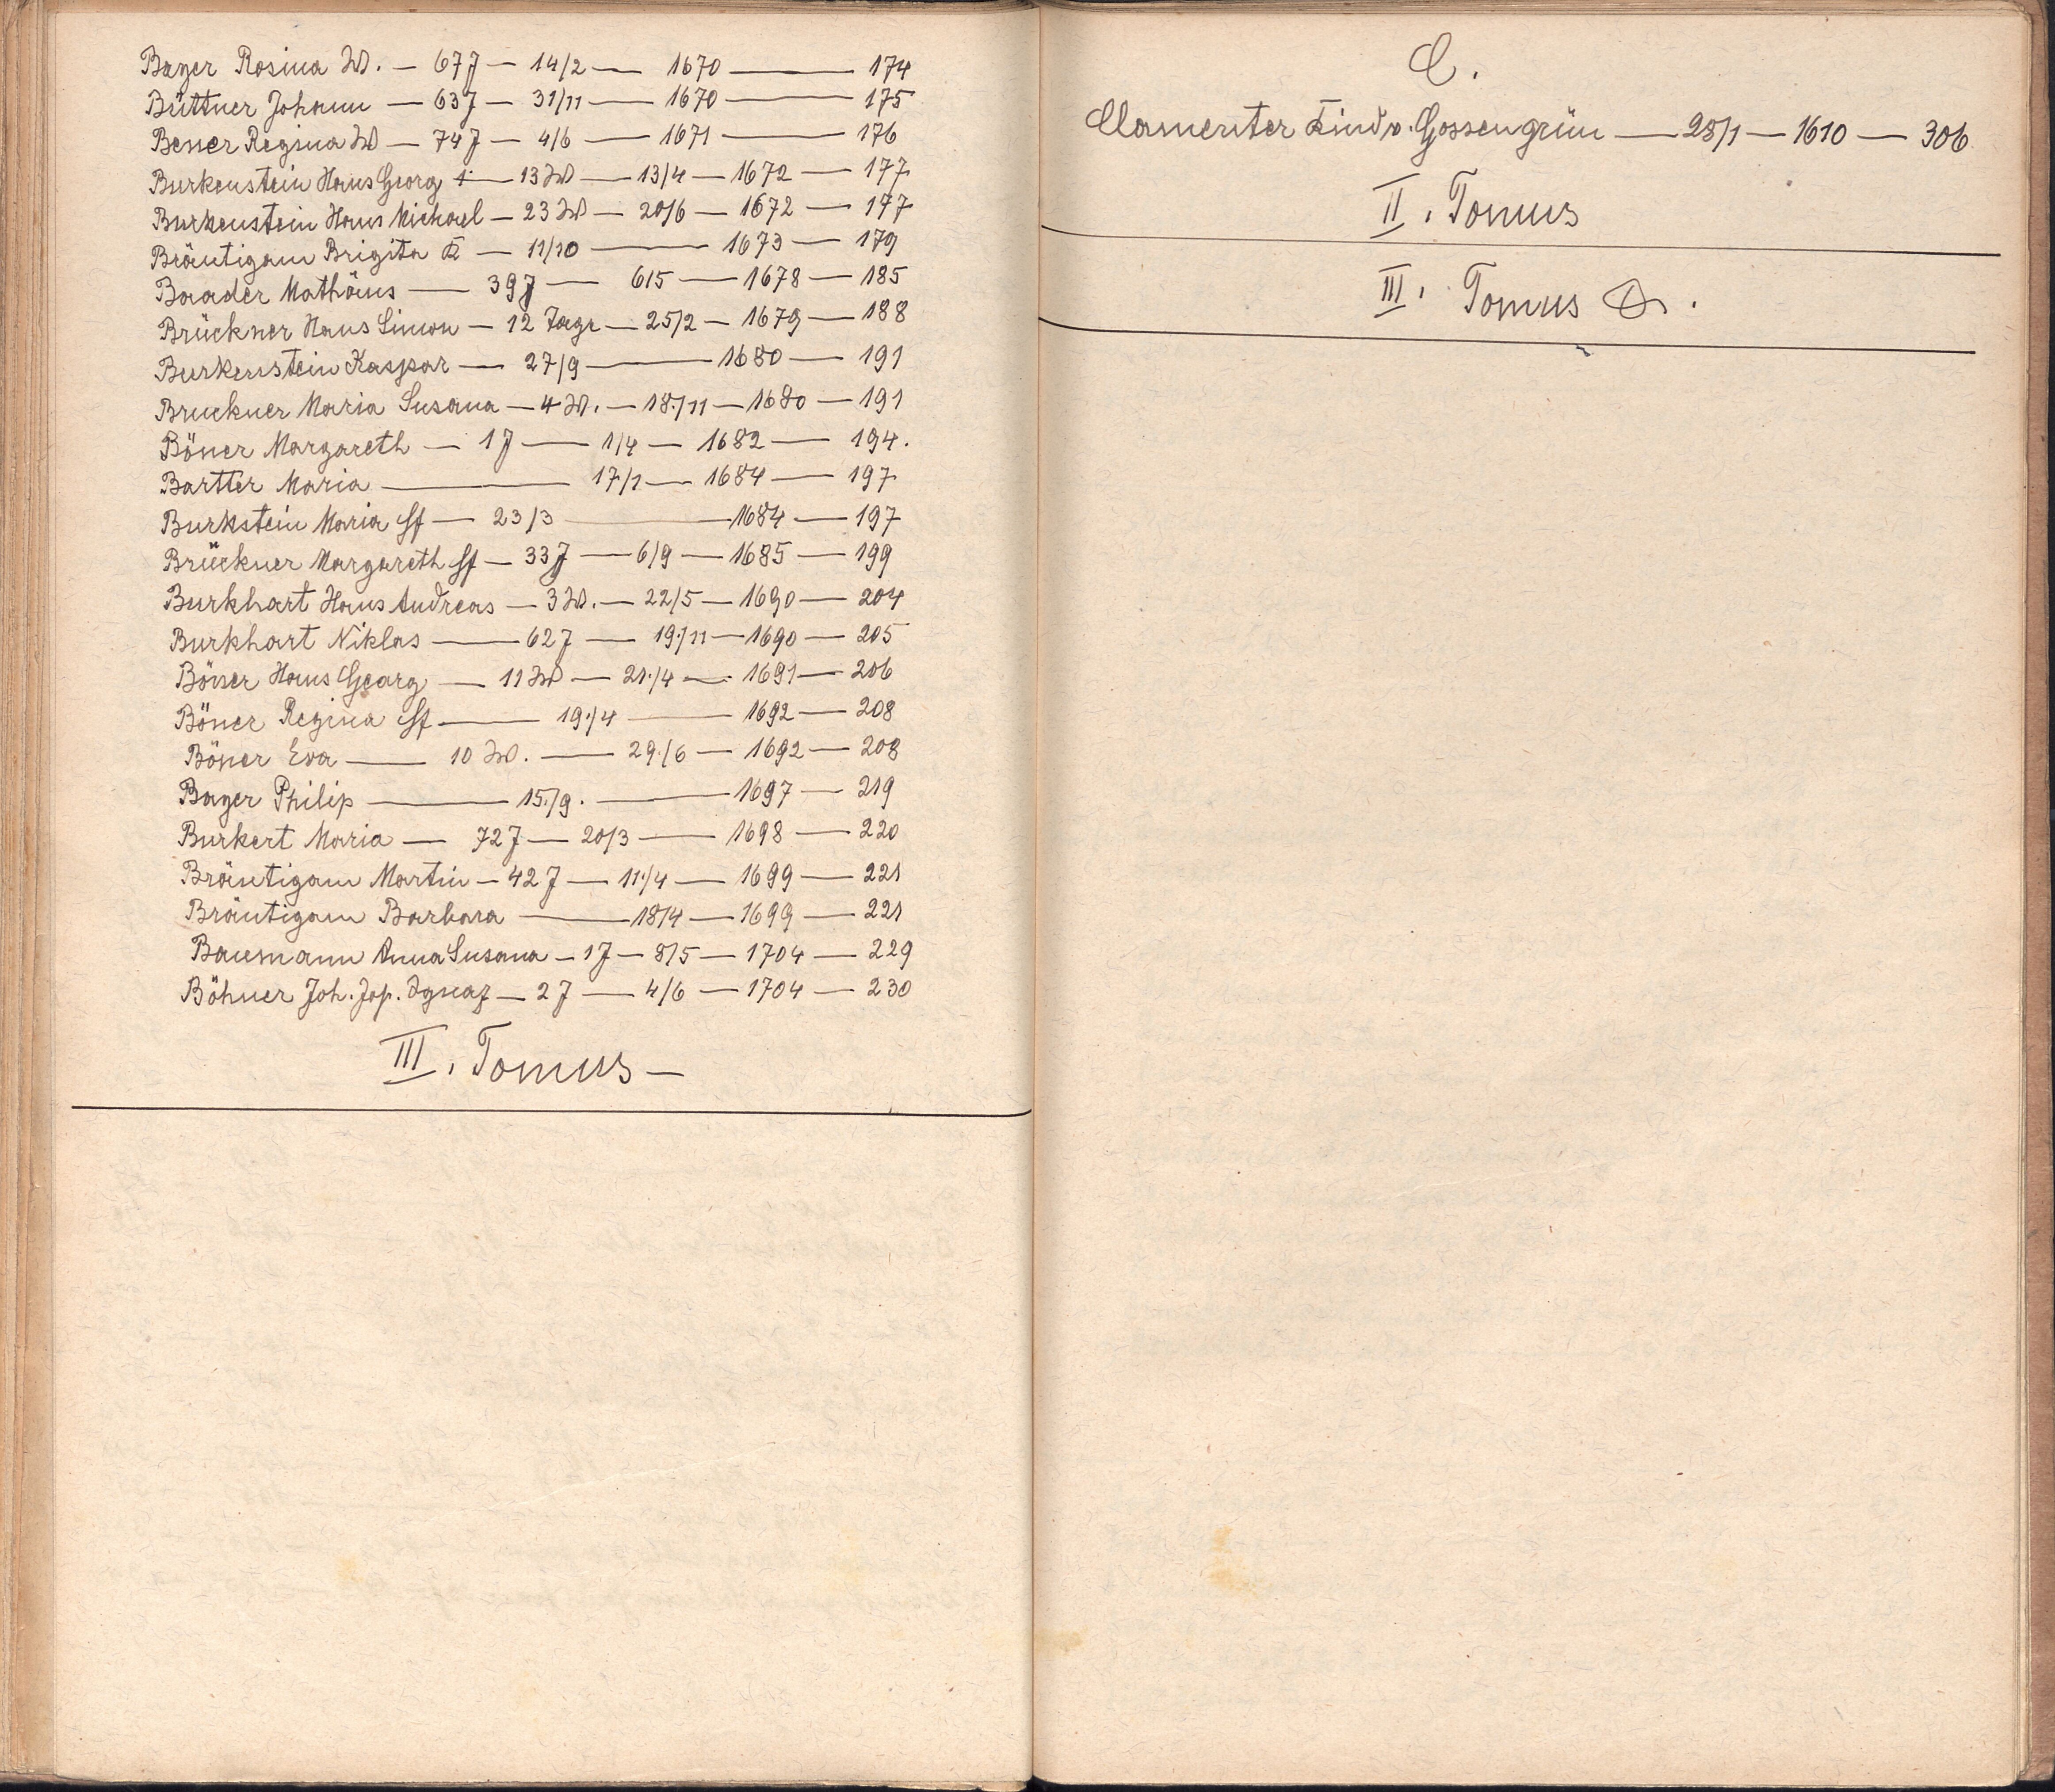 Bayer Rosina W. — 67 J — 14/2 — 1670 — 174
Büttner Johann — 63 J — 31/11 — 1670 — 175
Bener Regina W — 74 J — 4/6 — 1671 — 176
Burkenstein Hans Georg — 13 W — 13/4 — 1672 — 177
Burkenstein Hans Michael — 23 W — 20/6 — 1672 — 177
Bräutigam Brigita K — 11/10 — 1673 — 179
Baader Mathäus — 39 J — 6/5 — 1678 — 185
Brückner Hans Simon — 12 Tage — 25/2 — 1679 — 188
Burkenstein Kaspar — 27/9 — 1680 — 191
Bruckner Maria Susana — 4 W. — 18./11 — 1680 — 191
Böner Margareth — 1 J — 1/4 — 1682 — 194.
Bartter Maria — 17/1 — 1684 — 197
Burkstein Maria — 23/3 — 1684 — 197
Brückner Margareth — 33 J — 6/9 — 1685 — 199
Burkhart Hans Andreas — 3 W. — 22/5 — 1690 — 204
Burkhart Niklas — 62 J — 19./11 — 1690 — 205
Böner Hans Georg — 11 W — 21./4 — 1691 — 206
Böner Regina — 19./4 — 1692 — 208
Böner Eva — 10 W. — 29./6 — 1692 — 208
Bayer Philip — 15./9. — 1697 — 219
Burkert Maria — 72 J — 20/3 — 1698 — 220
Bräutigam Martin — 42 J — 11./4 — 1699 — 221
Bräutigam Barbara — 18/4 — 1699 — 221
Baumann Anna Susana — 1 J — 8/5 — 1704 — 229
Böhner Joh. Jos. Ignaz — 2 J — 4/6 — 1704 — 230
III. Tomus —
C.
Clamenter Kind v. Gossengrün — 28/1 — 1610 — 306
II. Tomus
III. Tomus